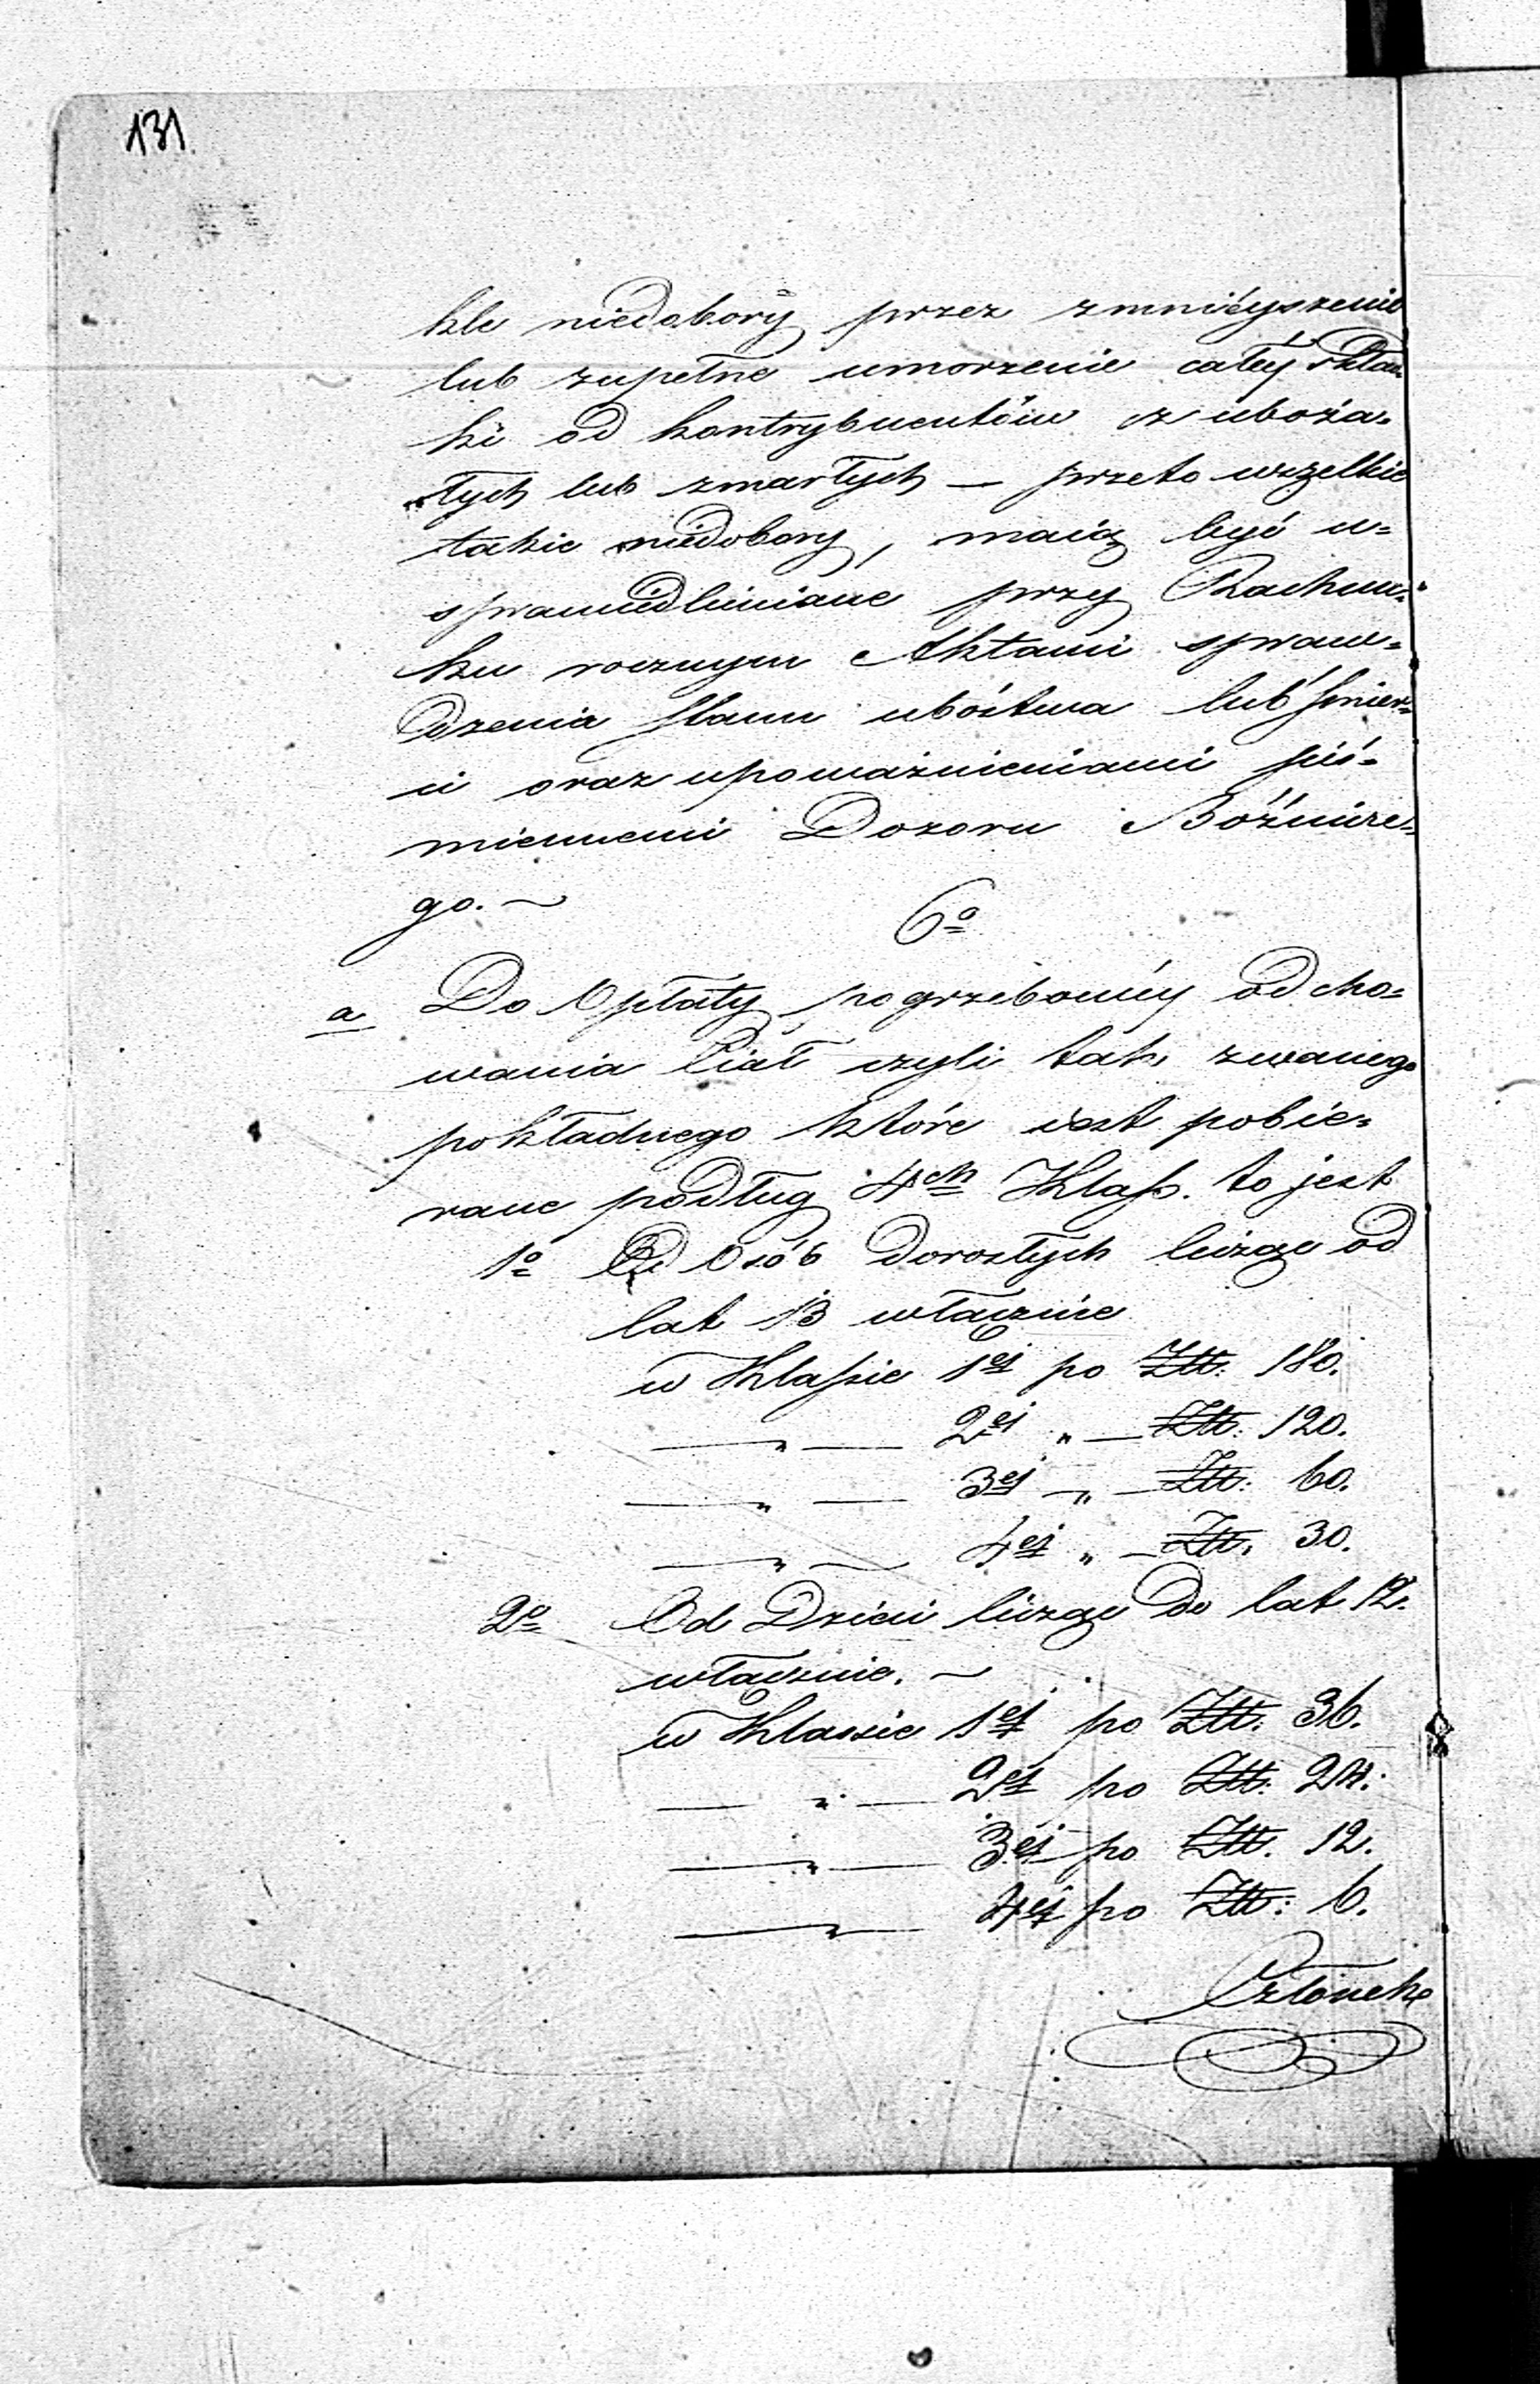 131
kle niedobory przez zmnieyszenie
lub zupełne umorzenie całéy składki
ki od kontrybuentów zuboża-
łych lub zmarłych — przeto wszelkie
takie niedobory, maią być u-
sprawiedliwiane przy Rachun-
ku rocznym Aktami spraw-
dzenia stanu ubóstwa lub śmier-
ci oraz upoważnieniami piś-
miennemi Dozoru Bóżnicze-
go. ~
6o
a Do Opłaty pogrzebowéy od cho-
wania Ciał czyli tak zwanego
pokładnego które iest pobie-
rane podług 4ch Klass. to jest
1o Od Osób dorosłych licząc od
lat 13 włącznie
w Klassie 1ej po Złt. 180.
— „ — 2ej „ — Złt. 120.
— „ — 3ej — „ — Złt. 60.
— „ — 4ej „ — Złt. 30.
2o Od Dzieci licząc do lat 12.
włącznie. ~
w Klassie 1ej po Złt. 36.
— „ — 2ej po Złt. 24.
— „ — 3ej po Złt. 12.
— „ — 4ej po Złt. 6.
Członek